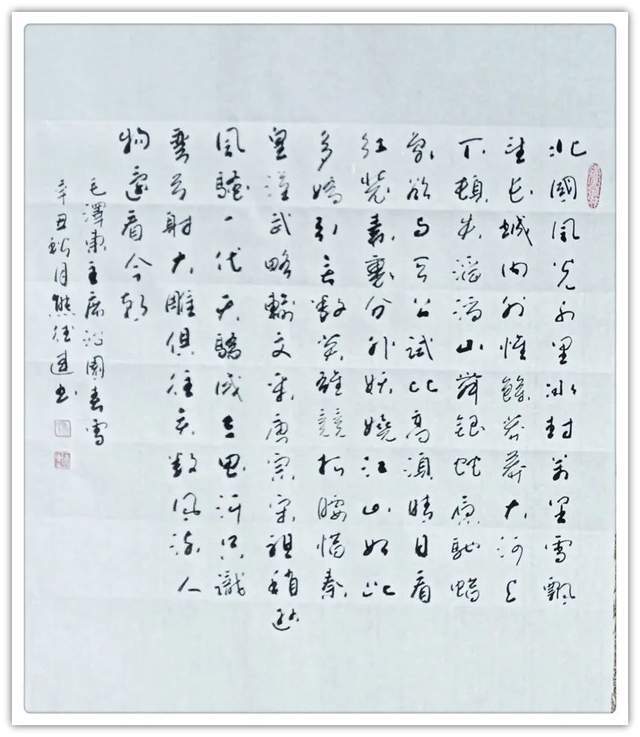 北國風光千里冰封萬里雪飄
望長城内外惟餘莽莽大河上
下頓失滔滔山舞銀蛇原馳蠟
象欲与天公試比高須晴日看
紅裝素裹分外妖嬈江山如此
多嬌引無數英雄競折腰惜秦
皇漢武略輸文采唐宗宋祖稍遜
風騷一代天驕成吉思汗只識
彎弓射大雕俱往矣數風流人
物還看今朝
毛澤東主席沁園春雪
辛丑秋月熊進书